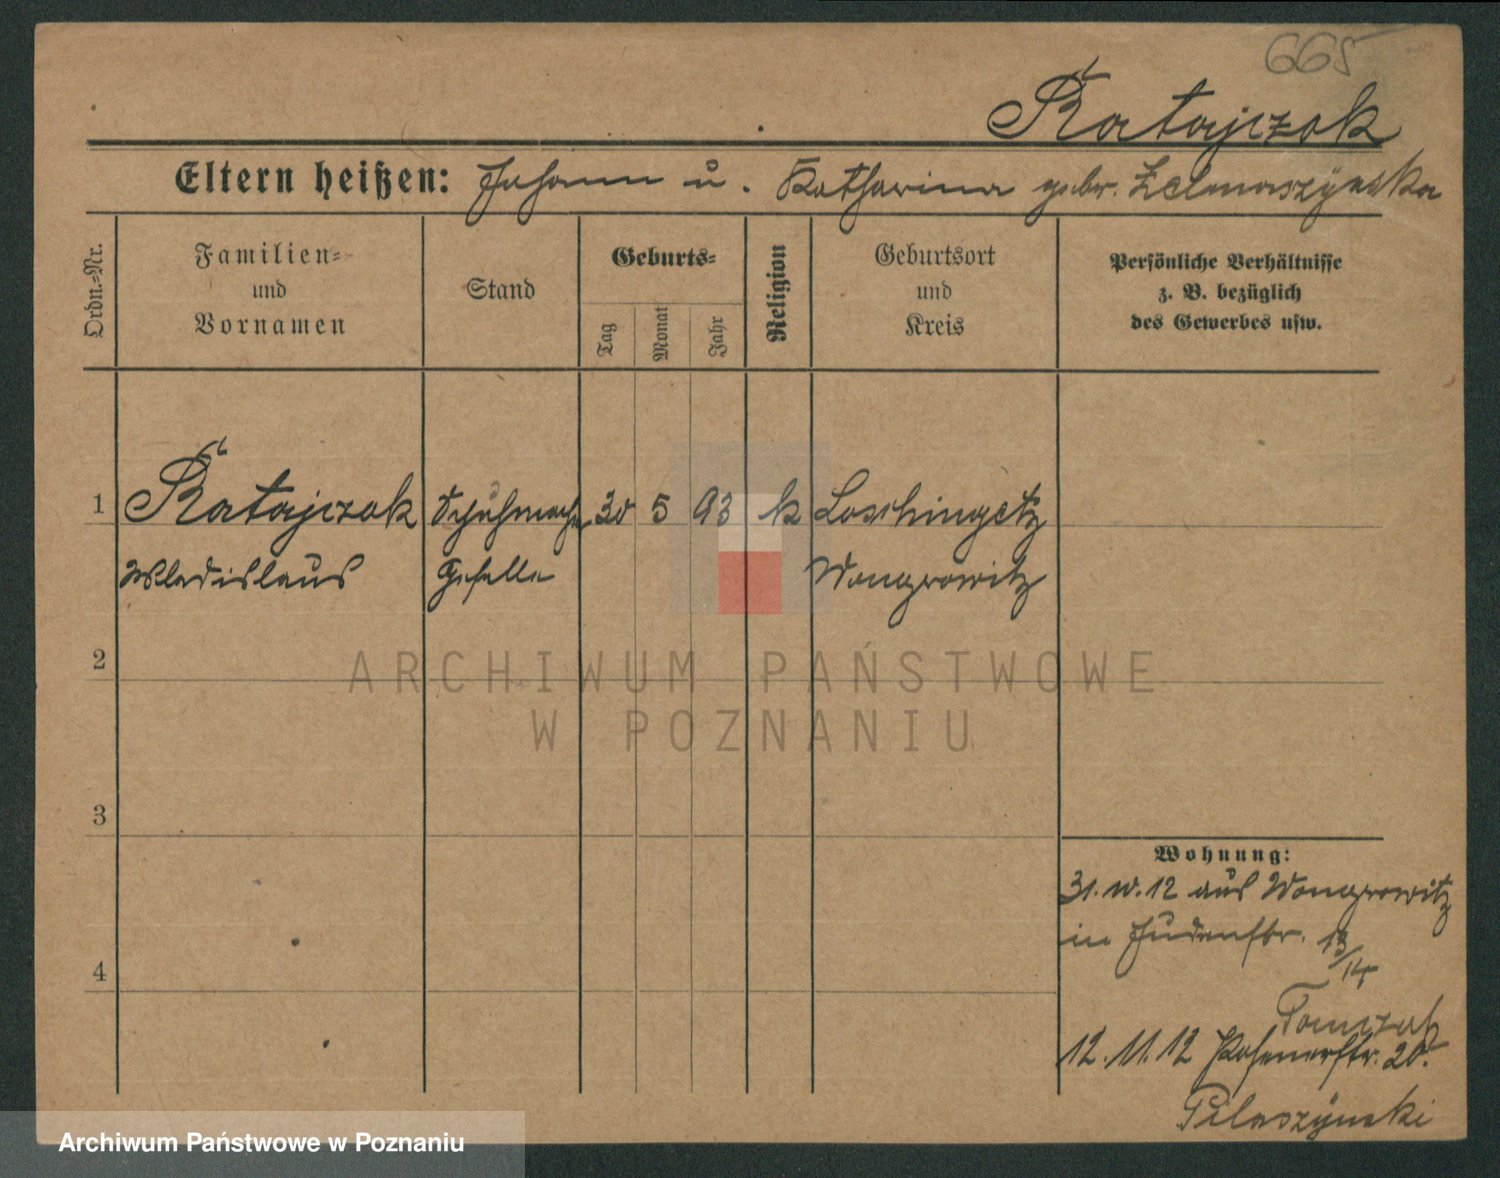 665
Ratajczak
Eltern heißen: Johann u. Katharina gebr. Zelmaszynska
Ordn.-Nr.
Familien-
und
Vornamen
Stand
Geburts-
Tag
Monat
Jahr
Religion
Geburtsort
und
Kreis
Persönliche Verhältnisse
z. B. bezüglich
des Gewerbes usw.
1 Ratajczak Schuhmacher 30 5 93 k Loschingetz
Wladislaus Geselle Wongrowitz
2
ARCHIWUM PAŃSTWOWE
W POZNANIU
3
Wohnung:
31. 10. 12 aus Wongrowitz
in Judenstr. 13/14
4
Tomczak
12. 11. 12 Posenerstr. 20.
Pilaszynski
Archiwum Państwowe w Poznaniu